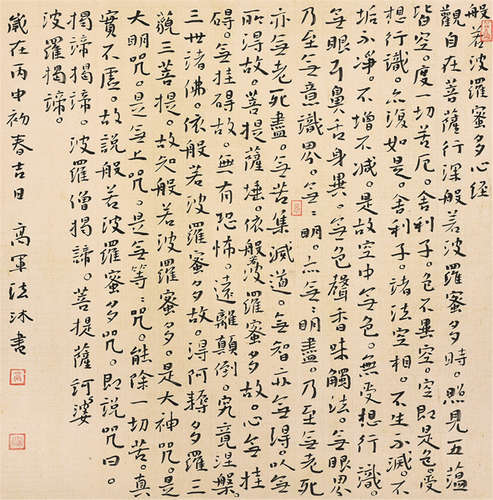 般若波羅蜜多心经
觀自在菩薩行深般若波羅蜜多時。照見五蘊
皆空。度一切苦厄。舍利子。色不異空。空即是色。受
想行識。亦復如是。舍利子。諸法空相。不生不滅。不
垢不淨。不增不減。是故空中無色。無受想行識
無眼耳鼻舌身意。無色聲香味觸法。無眼界
乃至無意識界。無〻明。亦無〻明盡。乃至無老死
亦無老死盡。無苦集滅道。無智亦無得。以無
所得故。菩提薩埵。依般若波羅蜜多故。心無挂
礙。無挂礙故。無有恐怖。遠離顛倒。究竟涅槃
三世諸佛。依般若波羅蜜多故。得阿耨多羅三
藐三菩提。故知般若波羅蜜多。是大神咒。是
大明咒。是無上咒。是無等〻咒。能除一切苦。真
實不虛。故說般若波羅蜜多咒。即說咒曰。
揭諦揭諦。波羅僧揭諦。菩提薩訶婆
波羅揭諦。
歲在丙申初春吉日 高軍法沐書